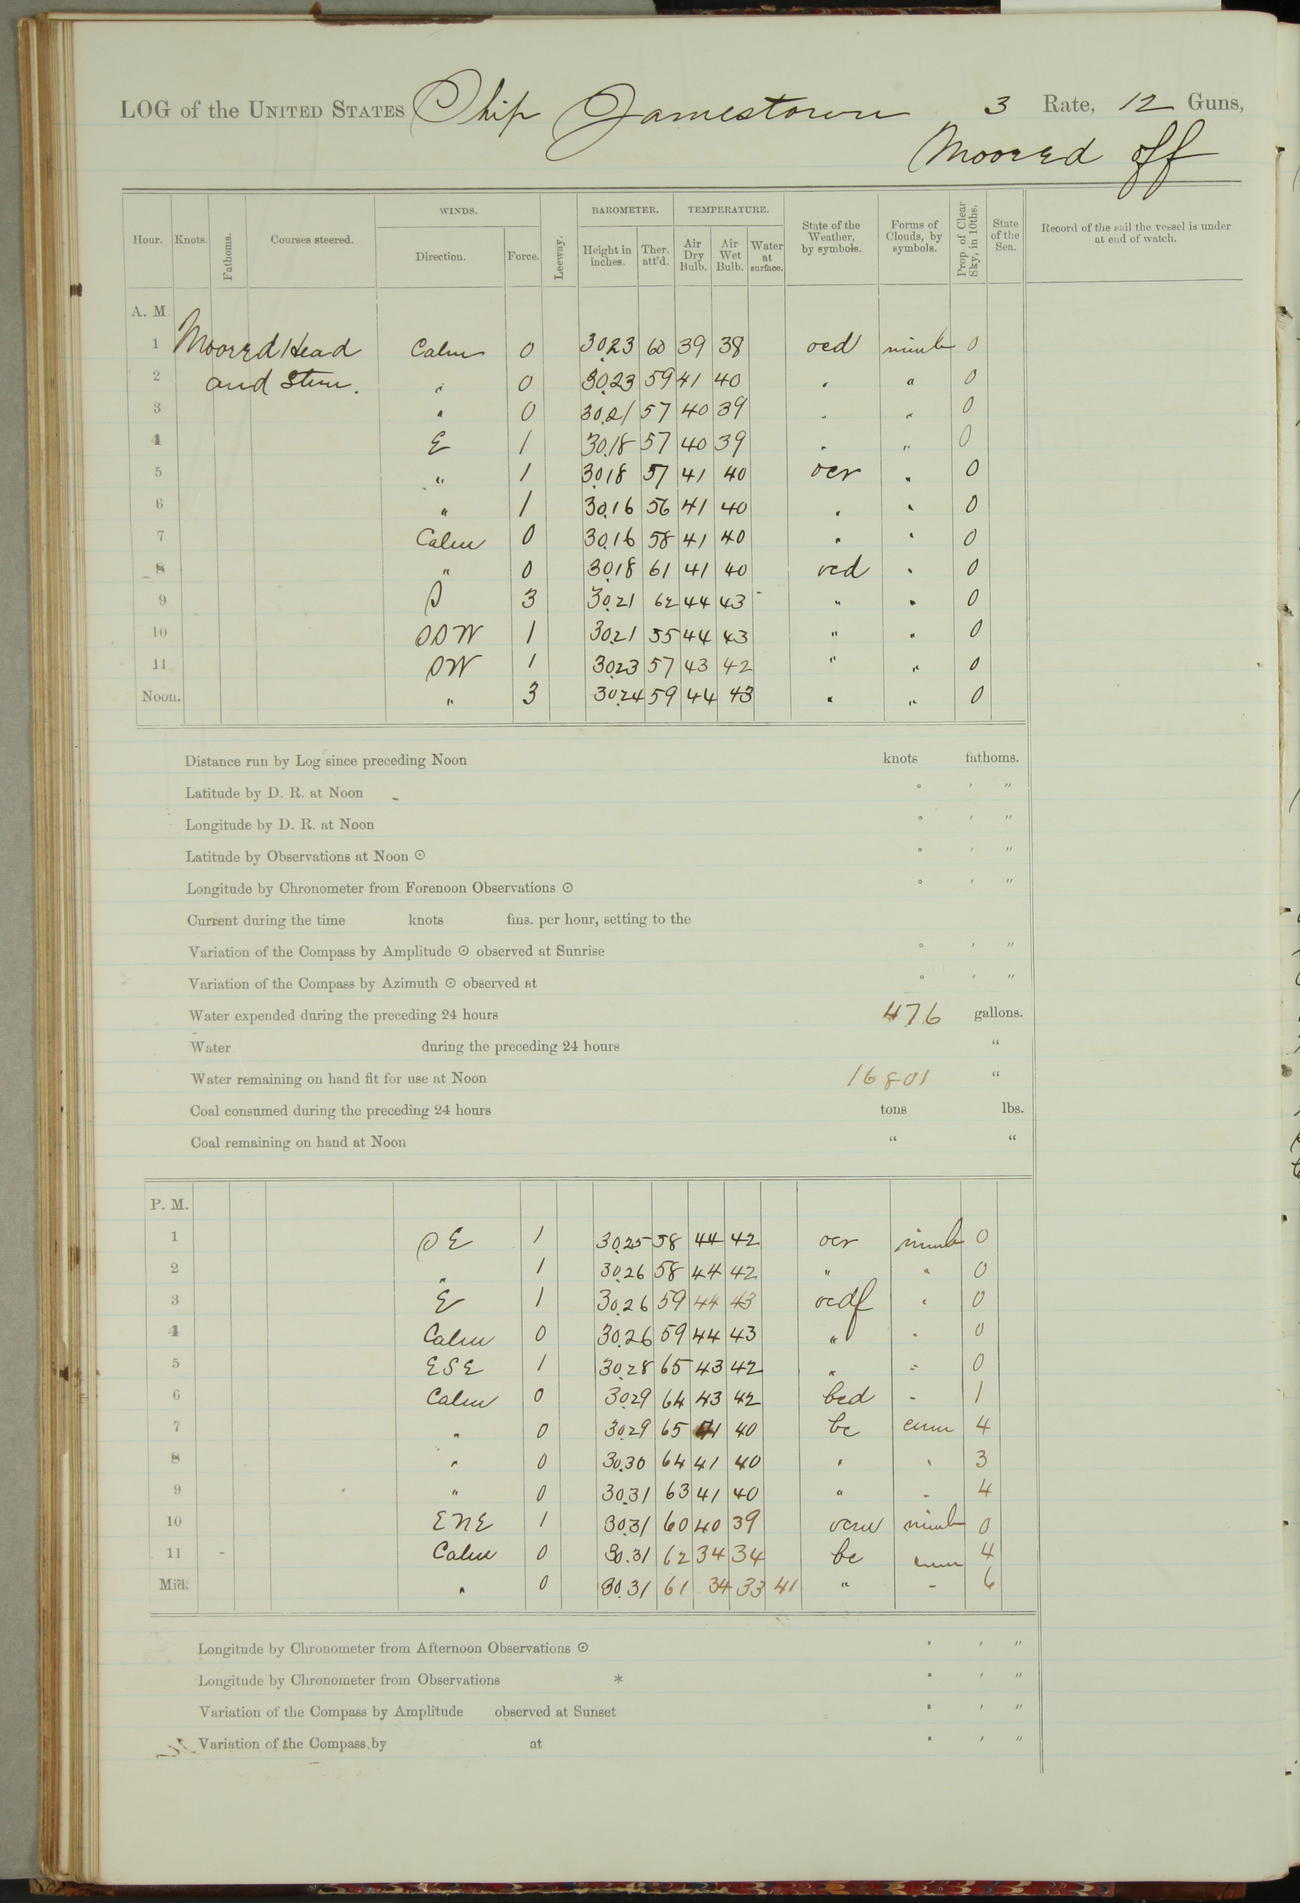 LOG of the UNITED STATES Ship Jamestown 3 Rate, 12 Guns,
Moored off
Hour. Knots. Fathoms. Courses steered. WINDS. Direction. Force. Leeway. BAROMETER. Height in inches. Ther. att'd. TEMPERATURE. Air Dry Bulb. Air Wet Bulb. Water at surface. State of the Weather, by symbols. Forms of Clouds, by symbols. Prop. of Clear Sky, in 10ths. State of the Sea. Record of the sail the vessel is under at end of watch.
A. M.
1 Moored Head Calm 0 30.23 60 39 38 ocd nimb 0
2 and Stern. " 0 30.23 59 41 40 " " 0
3 " 0 30.21 57 40 39 " " 0
4 E 1 30.18 57 40 39 " " 0
5 " 1 30.18 57 41 40 ocr " 0
6 " 1 30.16 56 41 40 " " 0
7 Calm 0 30.16 58 41 40 " " 0
8 " 0 30.18 61 41 40 ocd " 0
9 S 3 30.21 62 44 43 " " 0
10 SSW 1 30.21 55 44 43 " " 0
11 SW 1 30.23 57 43 42 " " 0
Noon. " 3 30.24 59 44 43 " " 0
Distance run by Log since preceding Noon knots fathoms.
Latitude by D. R. at Noon ° ′ ″
Longitude by D. R. at Noon ° ′ ″
Latitude by Observations at Noon ☉ ° ′ ″
Longitude by Chronometer from Forenoon Observations ☉ ° ′ ″
Current during the time knots fms. per hour, setting to the
Variation of the Compass by Amplitude ☉ observed at Sunrise ° ′ ″
Variation of the Compass by Azimuth ☉ observed at ° ′ ″
Water expended during the preceding 24 hours 476 gallons.
Water during the preceding 24 hours "
Water remaining on hand fit for use at Noon 16801 "
Coal consumed during the preceding 24 hours tons lbs.
Coal remaining on hand at Noon " "
P. M.
1 SE 1 30.25 58 44 42 ocr nimb 0
2 " 1 30.26 58 44 42 " " 0
3 E 1 30.26 59 44 43 ocdf " 0
4 Calm 0 30.26 59 44 43 " " 0
5 ESE 1 30.28 65 43 42 " " 0
6 Calm 0 30.29 64 43 42 bcd " 1
7 " 0 30.29 65 41 40 bc cum 4
8 " 0 30.30 64 41 40 " " 3
9 " 0 30.31 63 41 40 " " 4
10 ENE 1 30.31 60 40 39 ocm nimb 0
11 Calm 0 30.31 62 34 34 bc cum 4
Mid. " 0 30.31 61 34 33 41 " " 6
Longitude by Chronometer from Afternoon Observations ☉ ° ′ ″
Longitude by Chronometer from Observations * ° ′ ″
Variation of the Compass by Amplitude observed at Sunset ° ′ ″
Variation of the Compass by at ° ′ ″